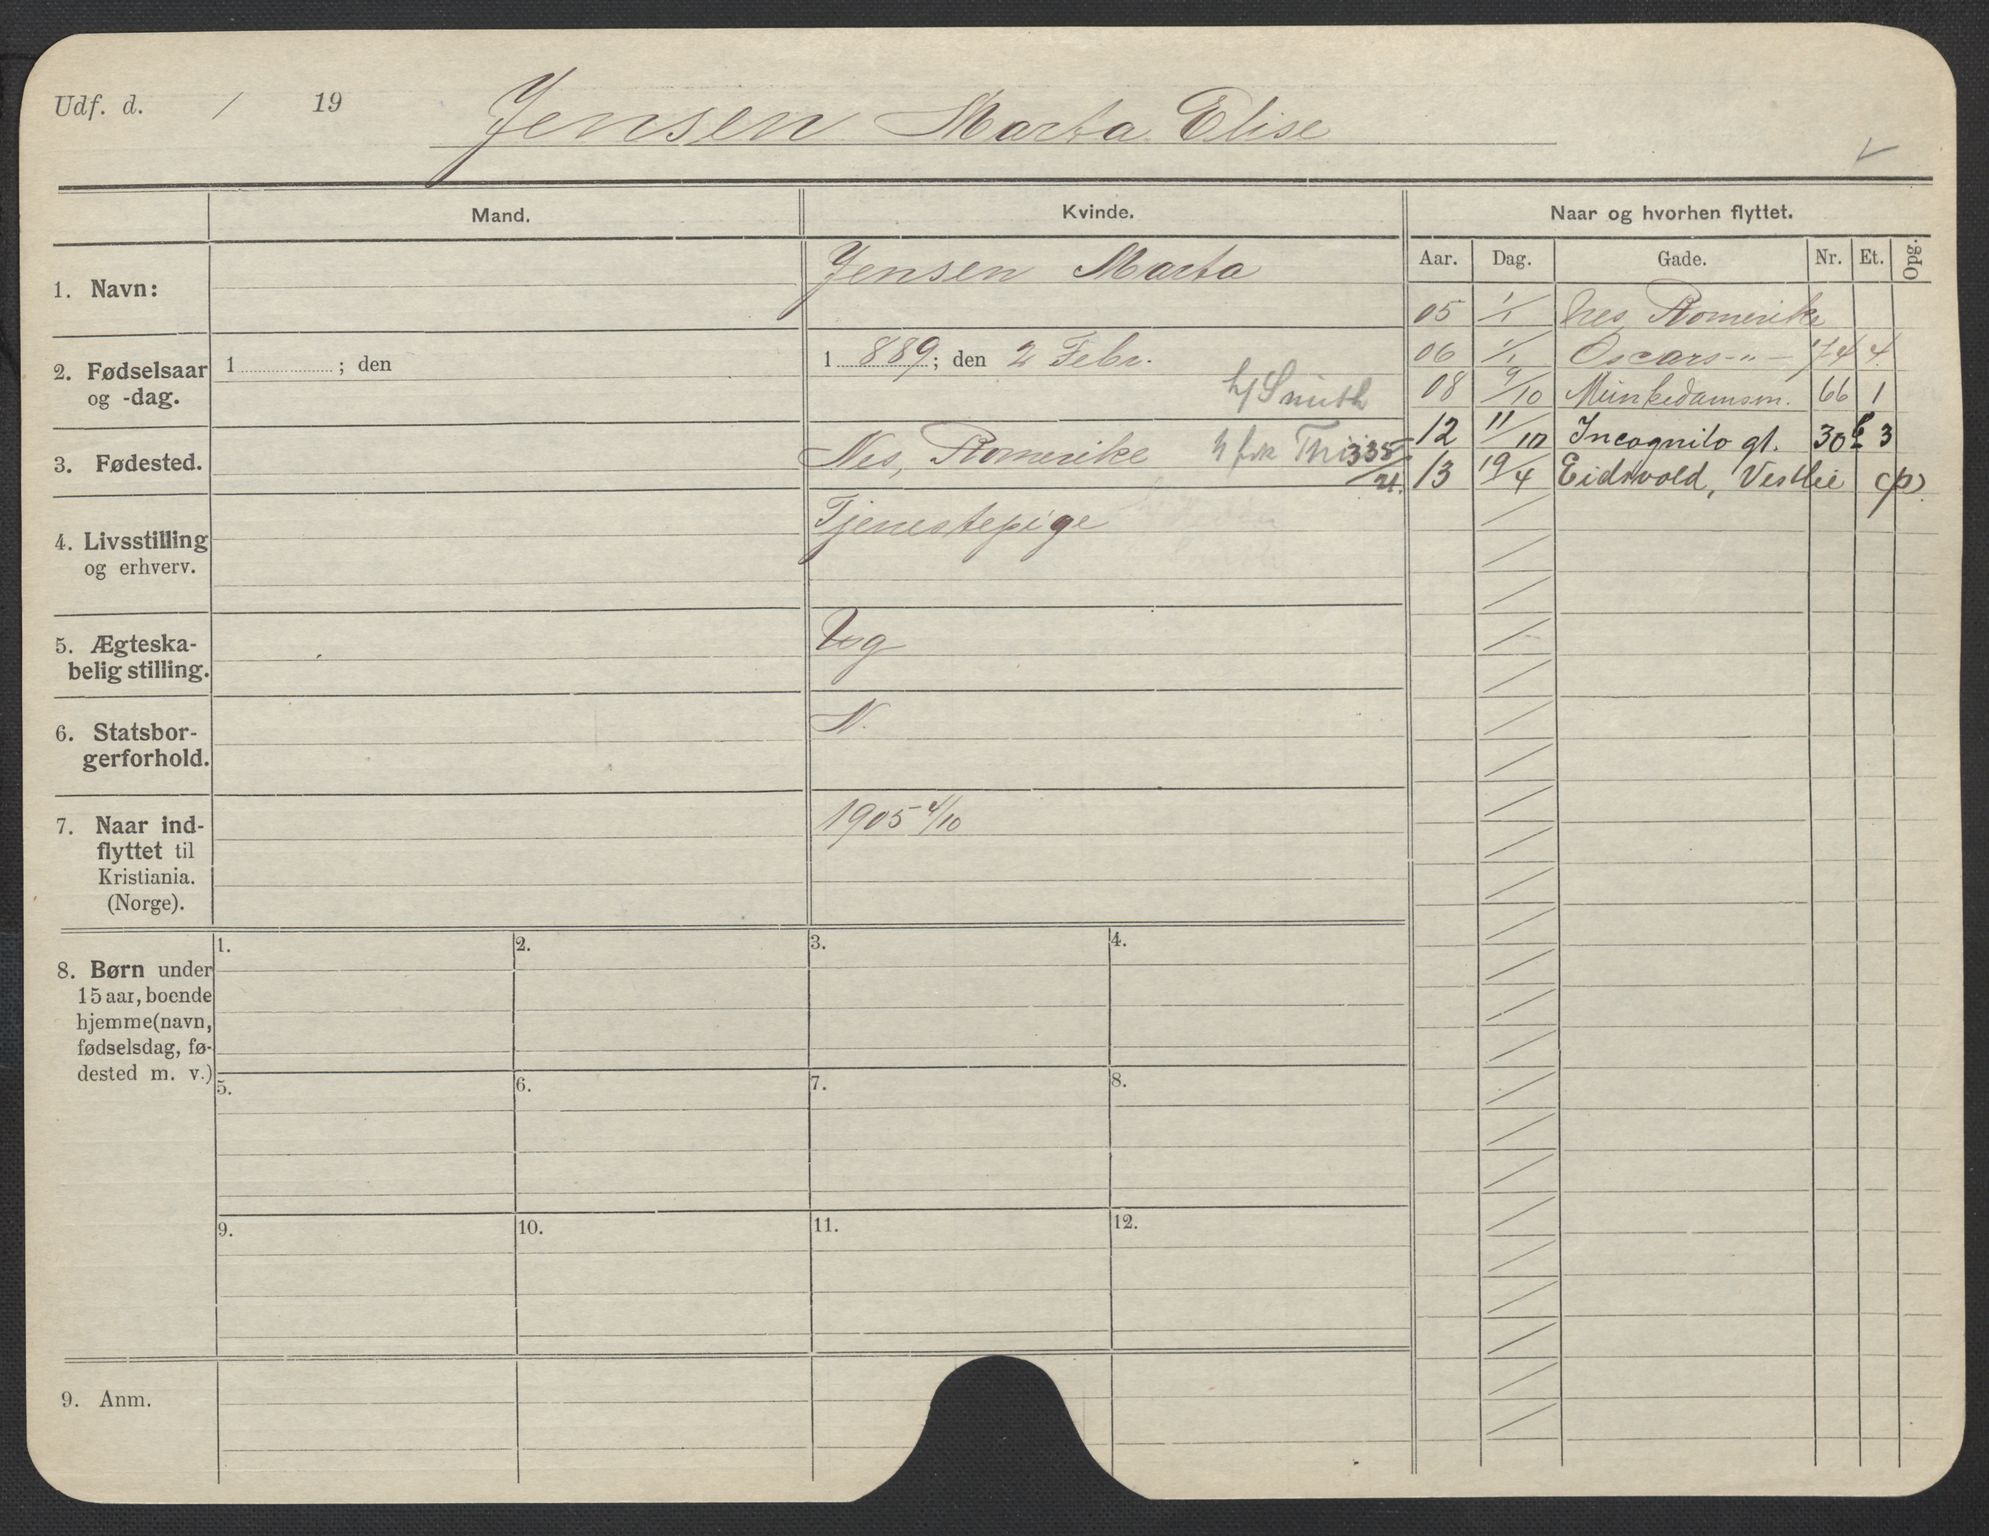 Udf. d. / 19
Jensen Marta Elise
Mand.
Kvinde.
Naar og hvorhen flyttet.
Aar. Dag. Gade. Nr. Et. Opg.
1. Navn:
Jensen Marta
2. Fødselsaar
og -dag.
1 ; den
1 889; den 2 Febr.
h/ Smith
3. Fødested.
Nes, Romerike
335/21.
4. Livsstilling
og erhverv.
Tjenestepige
5. Ægteska-
belig stilling.
Ug
6. Statsbor-
gerforhold.
N.
7. Naar ind-
flyttet til
Kristiania.
(Norge).
1905 4/10
05 1/1 Nes Romerike
06 1/1 Oscars-"- 74 4.
08 9/10 Munkedamsv. 66 1
12 11/10 Incognito gt. 30 b 3
13 19/4 Eidsvold, Vestlie
8. Børn under
15 aar, boende
hjemme (navn,
fødselsdag, fø-
dested m. v.)
1. 2. 3. 4.
5. 6. 7. 8.
9. 10. 11. 12.
9. Anm.